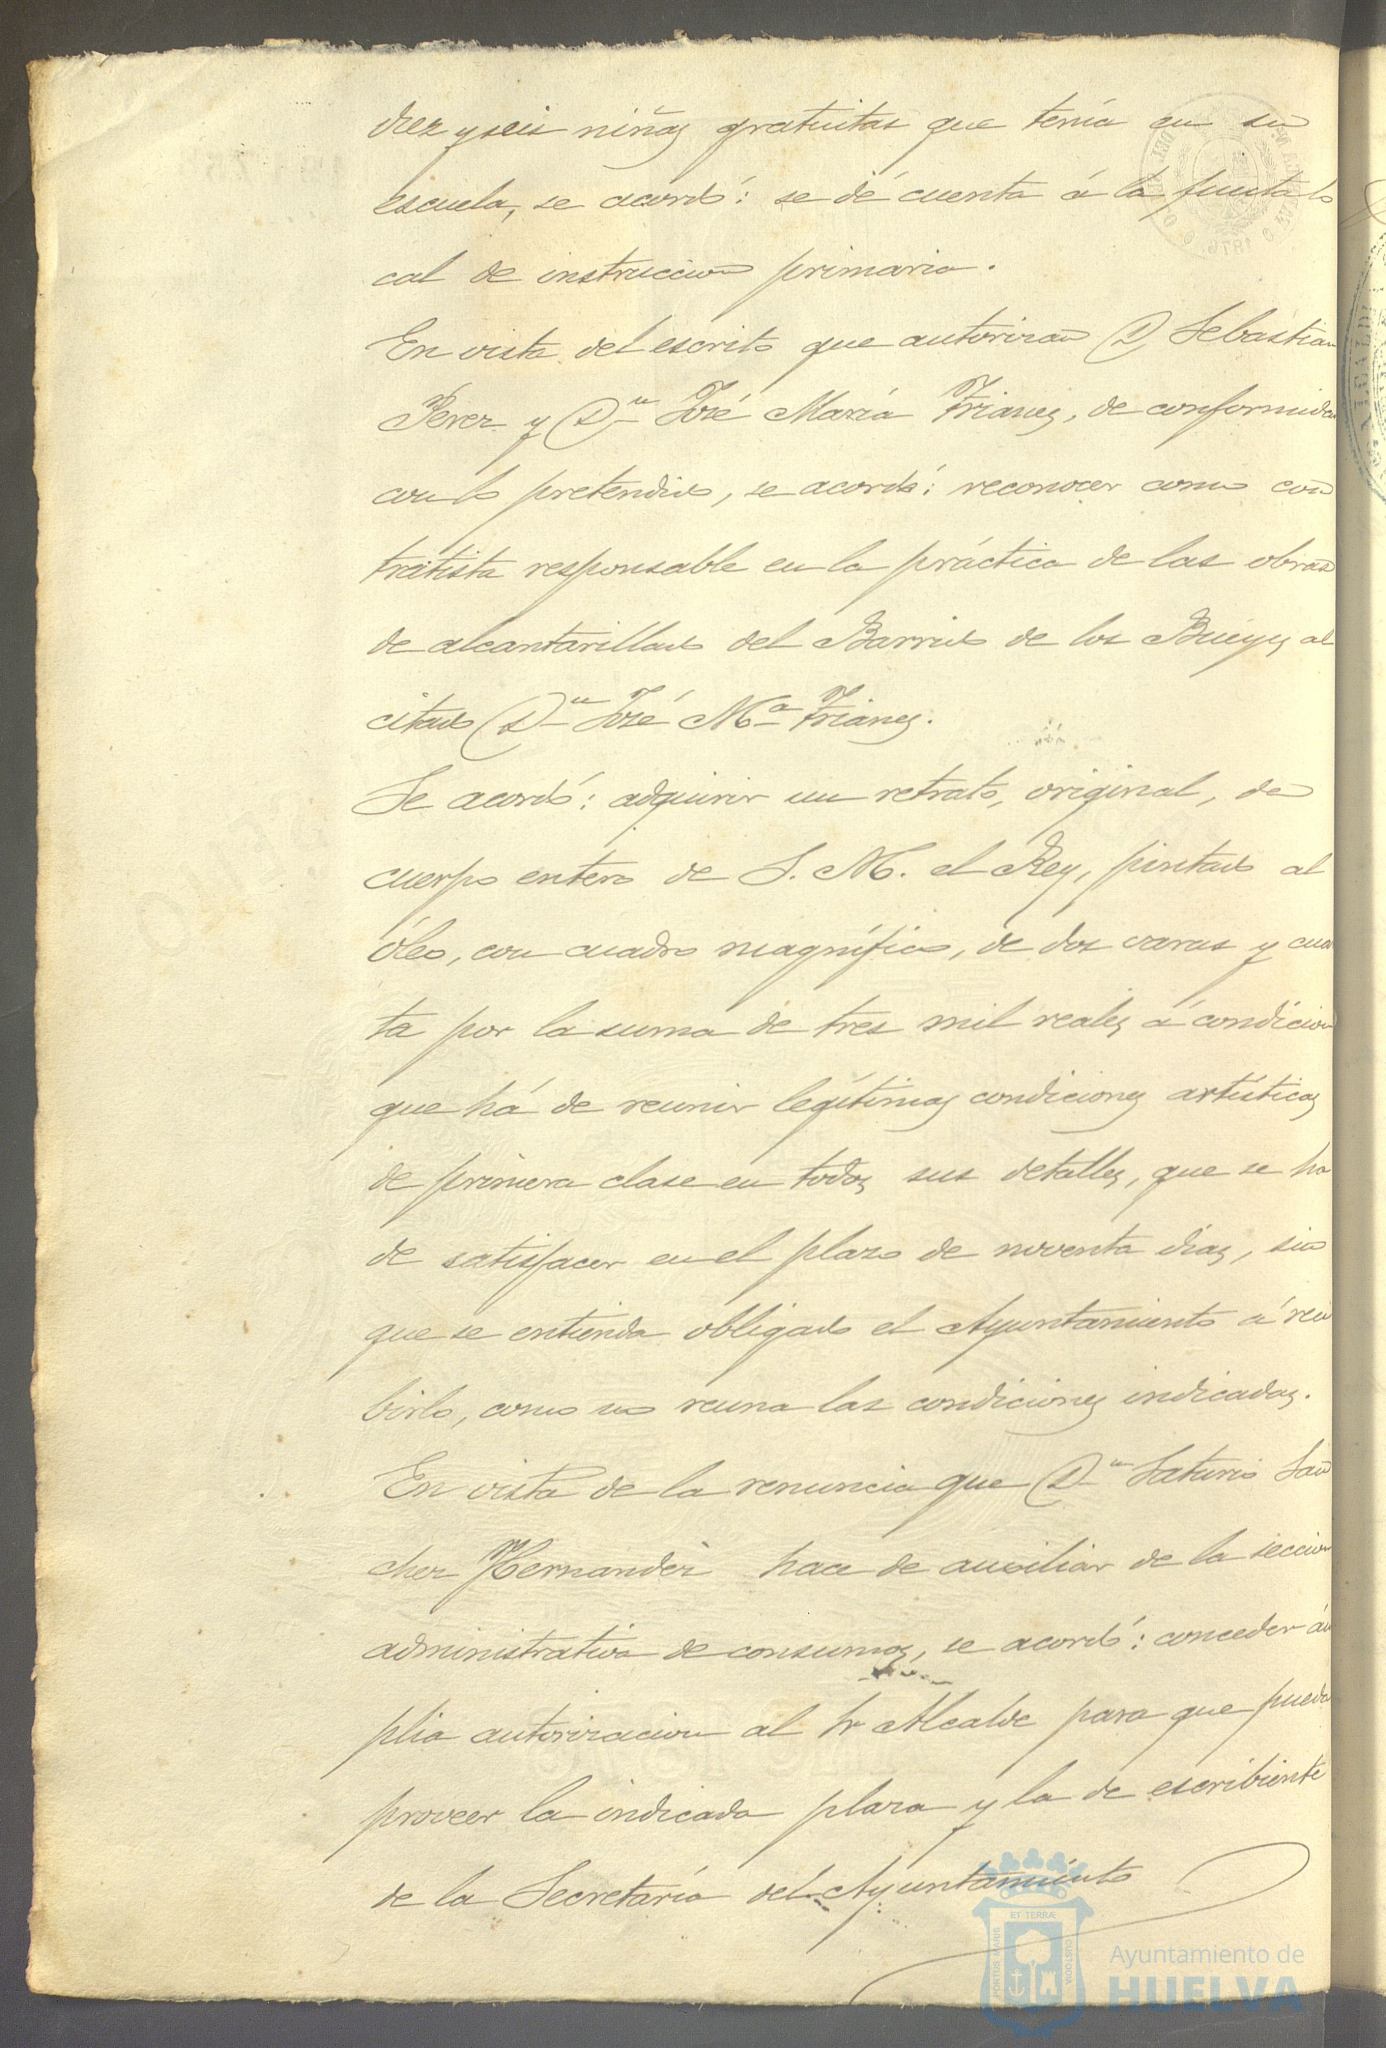 diez y seis niñas gratuitas que tenía en su
escuela, se acordó: se dé cuenta á la Junta lo
cal de instruccion primaria.
En vista del escrito que autorizan D Sebastian
Perez y Dn José María Trianes, de conformidad
con lo pretendido, se acordó: reconocer como con
tratista responsable en la práctica de las obras
de alcantarillado del Barrio de los Bueyes al
citado Dn José Ma Trianes.
Se acordó: adquirir un retrato, original, de
cuerpo entero de S. M. el Rey, pintado al
óleo, con cuadro magnífico, de dos varas y cuar
ta por la suma de tres mil reales á condicion
que há de reunir legítimas condiciones artísticas
de primera clase en todos sus detalles, que se ha
de satisfacer en el plazo de noventa dias, sin
que se entienda obligado el Ayuntamiento á reci
birlo, como no reuna las condiciones indicadas.
En vista de la renuncia que Dn Saturio San
chez Hernandez hace de auxiliar de la seccion
administrativa de consumos, se acordó: conceder ám
plia autorizacion al Sr Alcalde para que pueda
proveer la indicada plaza y la de escribiente
de la Secretaría del Ayuntamiento
ET TERRÆ
PORTUS MARIS
CUSTODIA
Ayuntamiento de
HUELVA